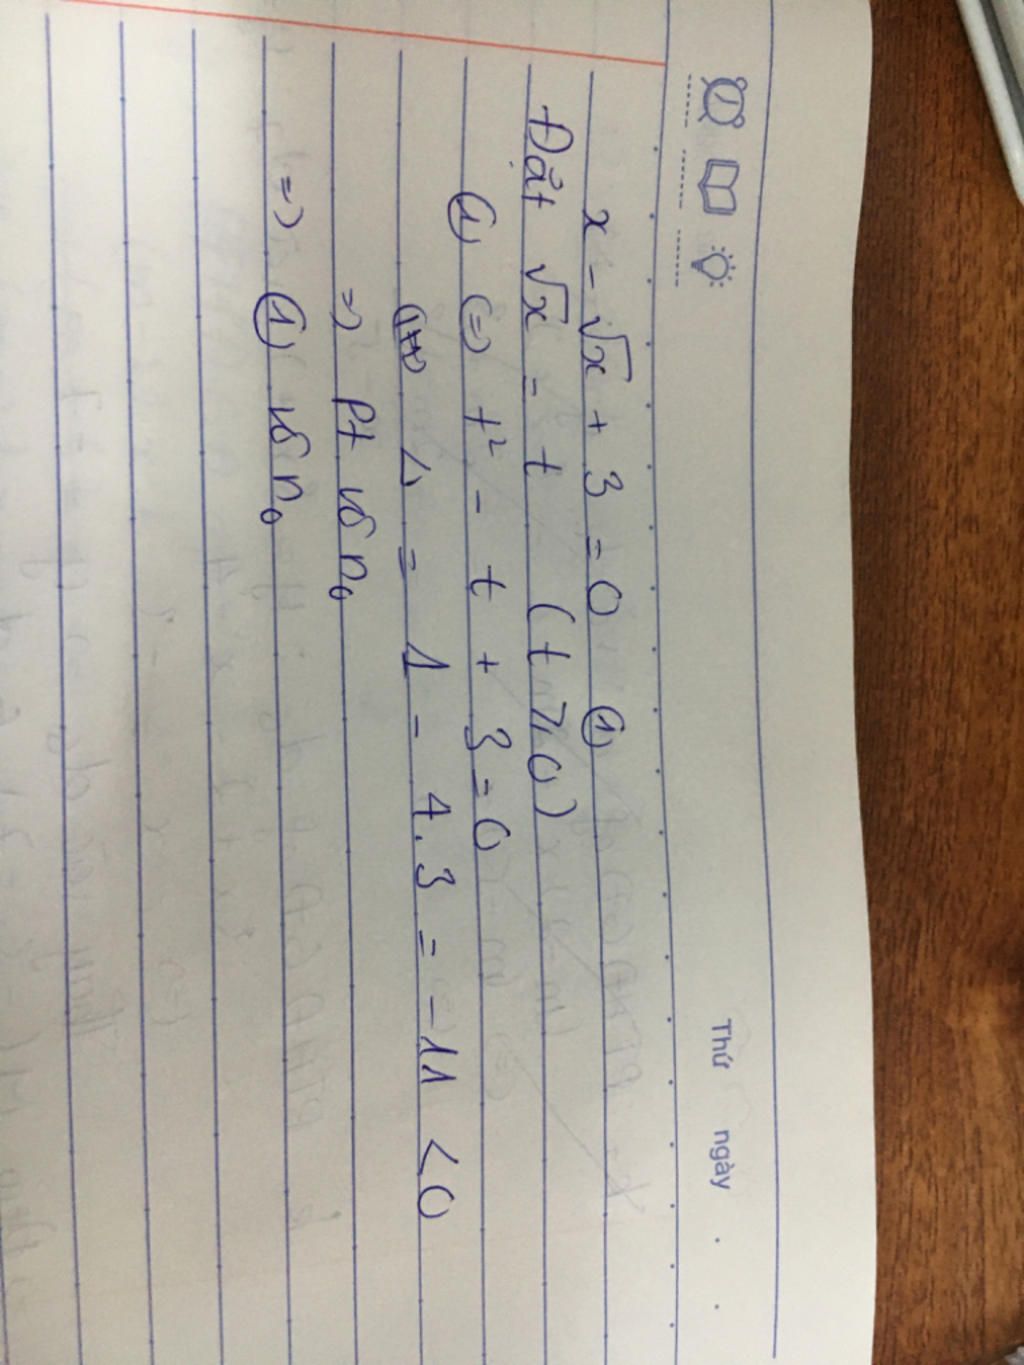 Thứ ngày
x - √x + 3 = 0 ①
Đặt √x = t (t ⩾ 0)
① (=) t² - t + 3 = 0
Δ = 1 - 4.3 = -11 < 0
=) Pt vô no
=) ① vô no